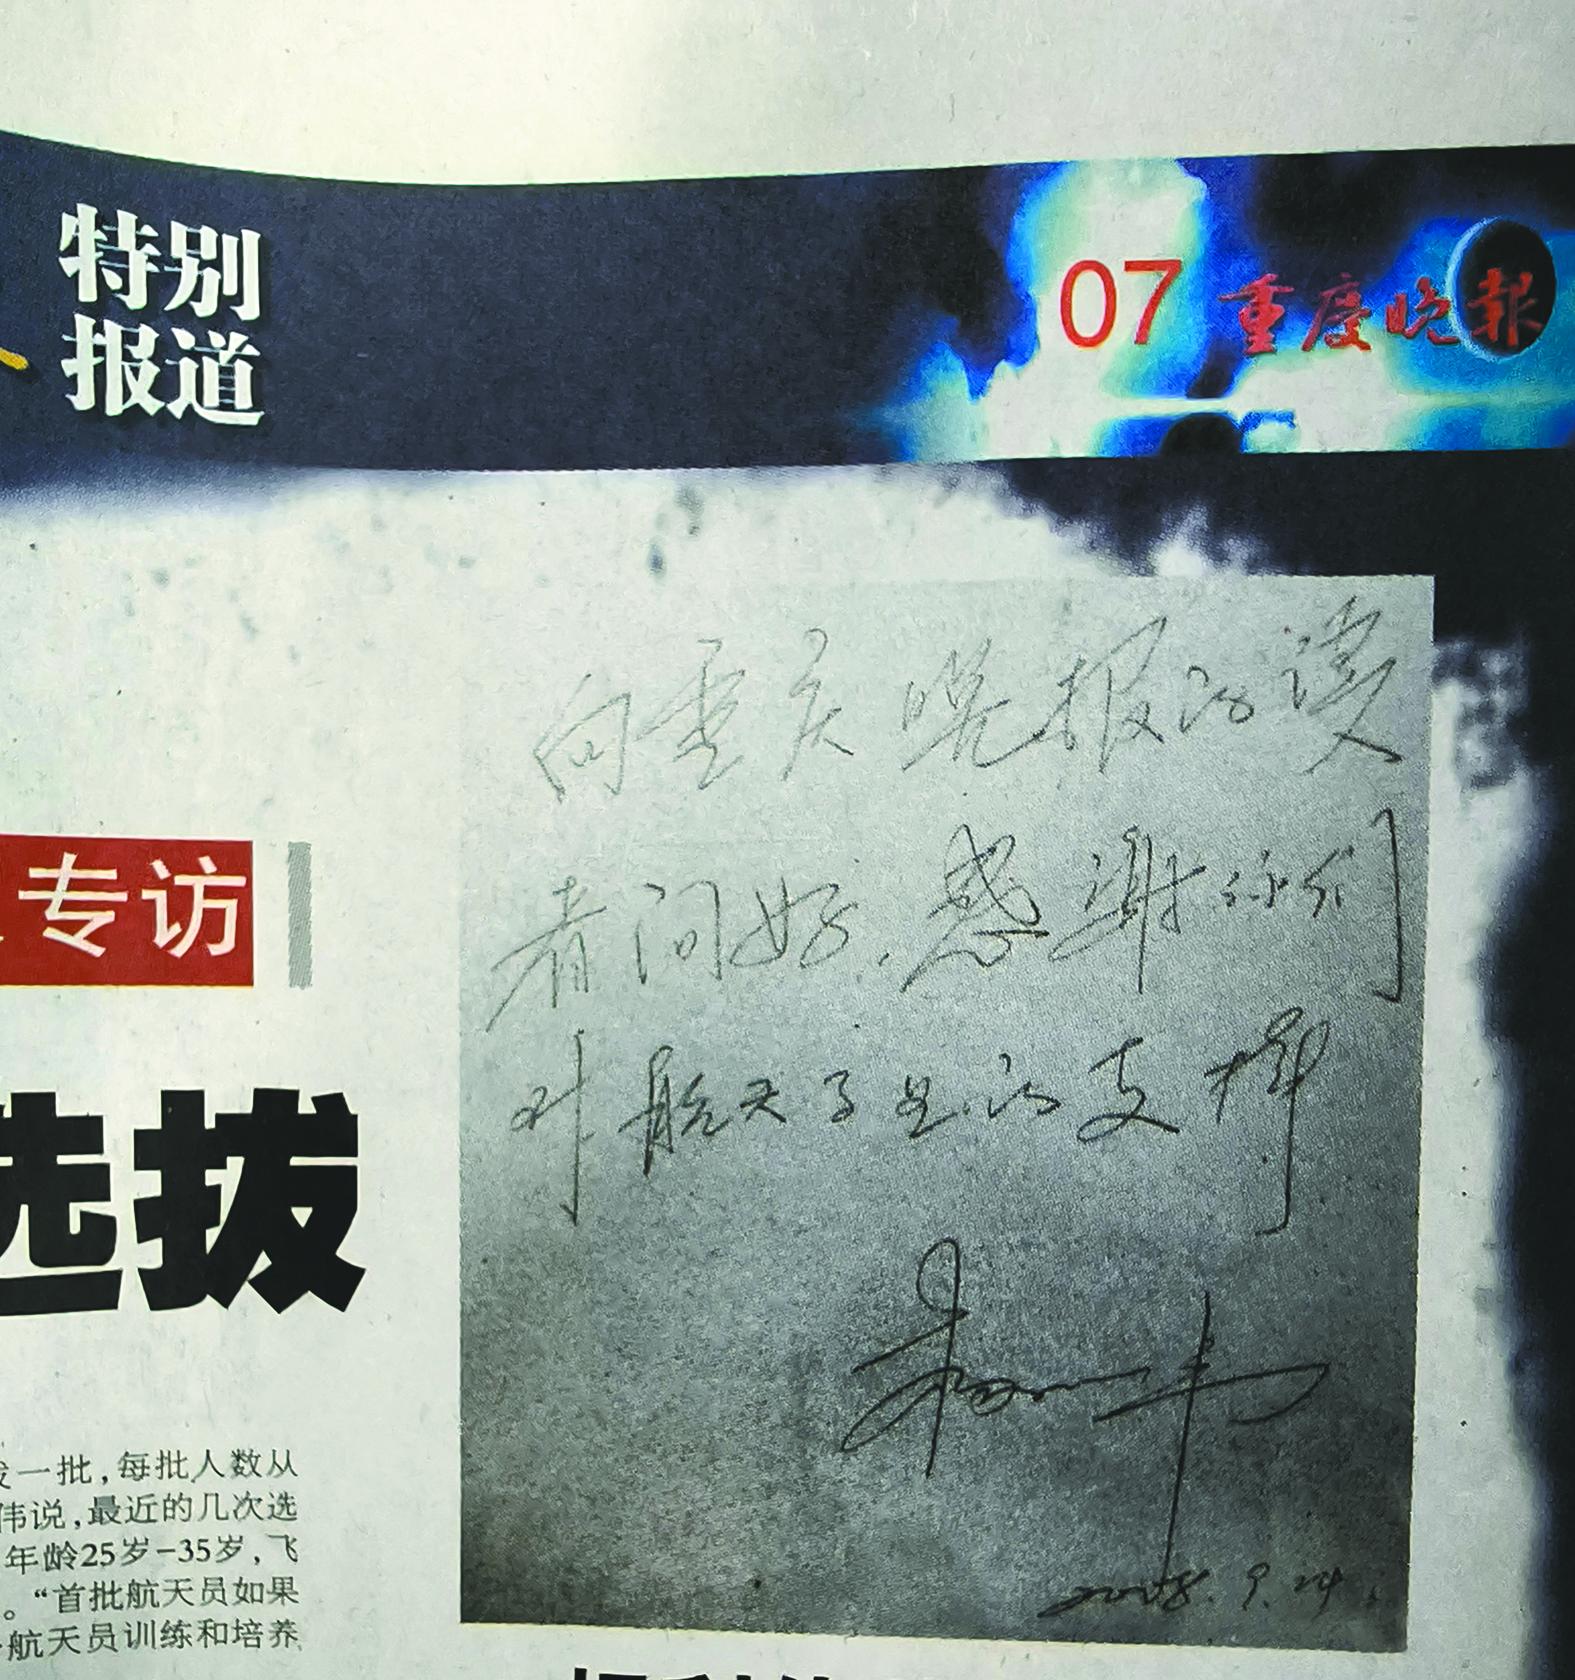 特别
报道
07 重庆晚报
向重庆晚报的读
者问好，感谢你们
对航天事业的支持
杨利伟
2008.9.24.
专访
选拔
一批，每批人数从
伟说，最近的几次选
年龄25岁-35岁，飞
。“首批航天员如果
航天员训练和培养